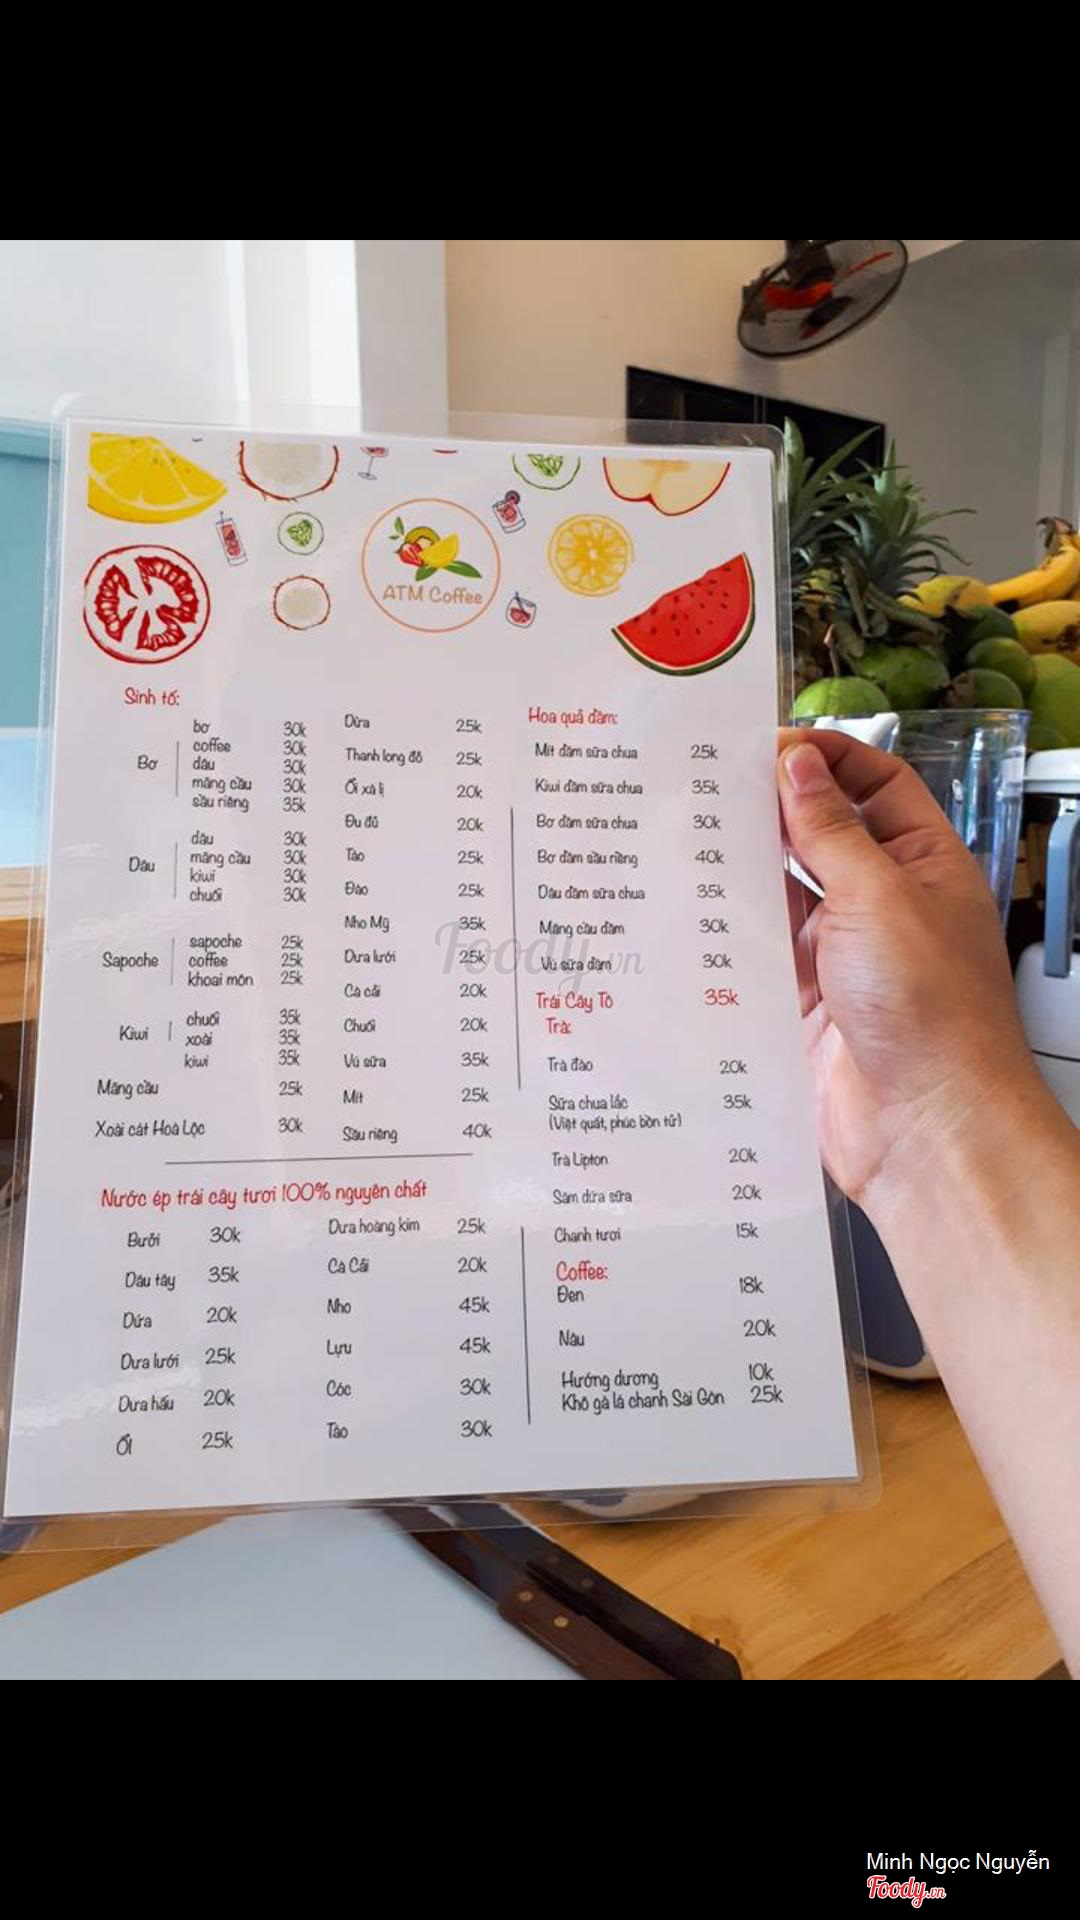 ATM Coffee
Sinh tố:
Bơ
bơ 30k
coffee 30k
dâu 30k
mãng cầu 30k
sầu riêng 35k
Dâu
dâu 30k
mãng cầu 30k
kiwi 30k
chuối 30k
Sapoche
sapoche 25k
coffee 25k
khoai môn 25k
Kiwi
chuối 35k
xoài 35k
kiwi 35k
Mãng cầu 25k
Xoài cát Hoà Lộc 30k
Dừa 25k
Thanh long đỏ 25k
Ổi xá lị 20k
Đu đủ 20k
Táo 25k
Đào 25k
Nho Mỹ 35k
Dưa lưới 25k
Cà cải 20k
Chuối 20k
Vú sữa 35k
Mít 25k
Sầu riêng 40k
Hoa quả dầm:
Mít dầm sữa chua 25k
Kiwi dầm sữa chua 35k
Bơ dầm sữa chua 30k
Bơ dầm sầu riêng 40k
Dâu dầm sữa chua 35k
Mãng cầu dầm 30k
Vú sữa dầm 30k
Trái Cây Tô 35k
Trà:
Trà đào 20k
Sữa chua lắc 35k
(Việt quất, phúc bồn tử)
Trà Lipton 20k
Sâm dứa sữa 20k
Chanh tươi 15k
Coffee:
Đen 18k
Nâu 20k
Hướng dương 10k
Khô gà lá chanh Sài Gòn 25k
Nước ép trái cây tươi 100% nguyên chất
Bưởi 30k
Dâu tây 35k
Dứa 20k
Dưa lưới 25k
Dưa hấu 20k
Ổi 25k
Dưa hoàng kim 25k
Cà Cải 20k
Nho 45k
Lựu 45k
Cóc 30k
Táo 30k
Foody.vn
Minh Ngọc Nguyễn
Foody.vn